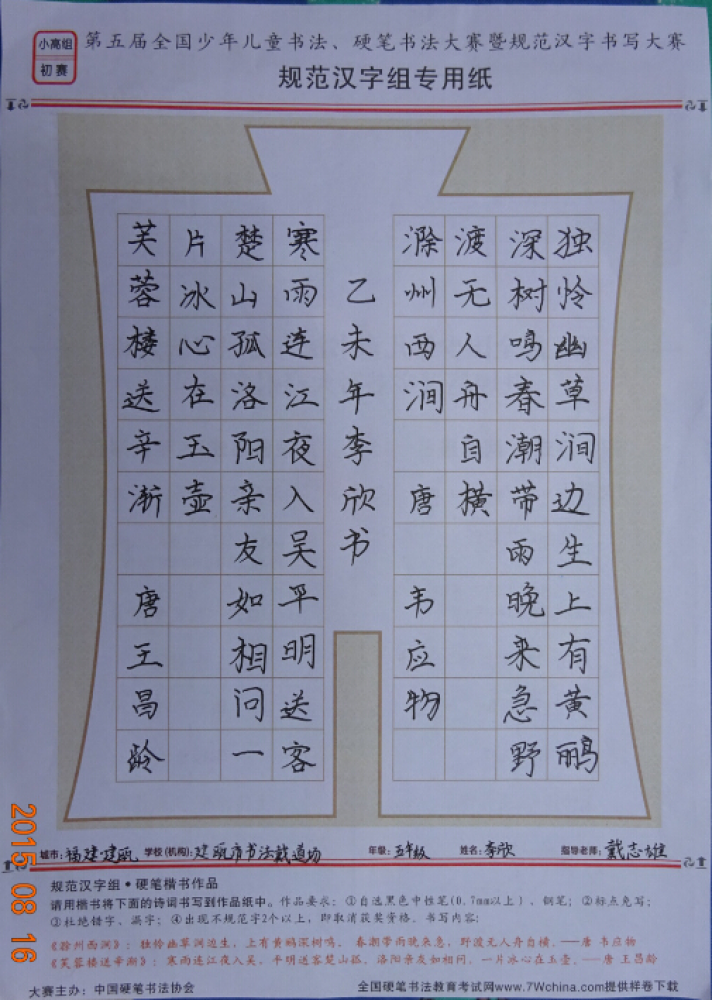 小高组
初赛
第五届全国少年儿童书法、硬笔书法大赛暨规范汉字书写大赛
规范汉字组专用纸
独怜幽草涧边生上有黄鹂
深树鸣春潮带雨晚来急野
渡无人舟自横
滁州西涧 唐 韦应物
乙未年李欣书
寒雨连江夜入吴平明送客
楚山孤洛阳亲友如相问一
片冰心在玉壶
芙蓉楼送辛渐 唐王昌龄
城市：福建·建瓯 学校(机构)：建瓯市书法戴道场 年级：五年级 姓名：李欣 指导老师：戴志雄
规范汉字组·硬笔楷书作品
请用楷书将下面的诗词书写到作品纸中。作品要求：①自选黑色中性笔(0.7mm以上)、钢笔；②标点免写；
③杜绝错字、漏字；④出现不规范字2个以上，即取消获奖资格。书写内容：
《滁州西涧》：独怜幽草涧边生，上有黄鹂深树鸣。春潮带雨晚来急，野渡无人舟自横。——唐 韦应物
《芙蓉楼送辛渐》：寒雨连江夜入吴，平明送客楚山孤。洛阳亲友如相问，一片冰心在玉壶。——唐 王昌龄
大赛主办：中国硬笔书法协会 全国硬笔书法教育考试网www.7Wchina.com提供样卷下载
2015 08 16